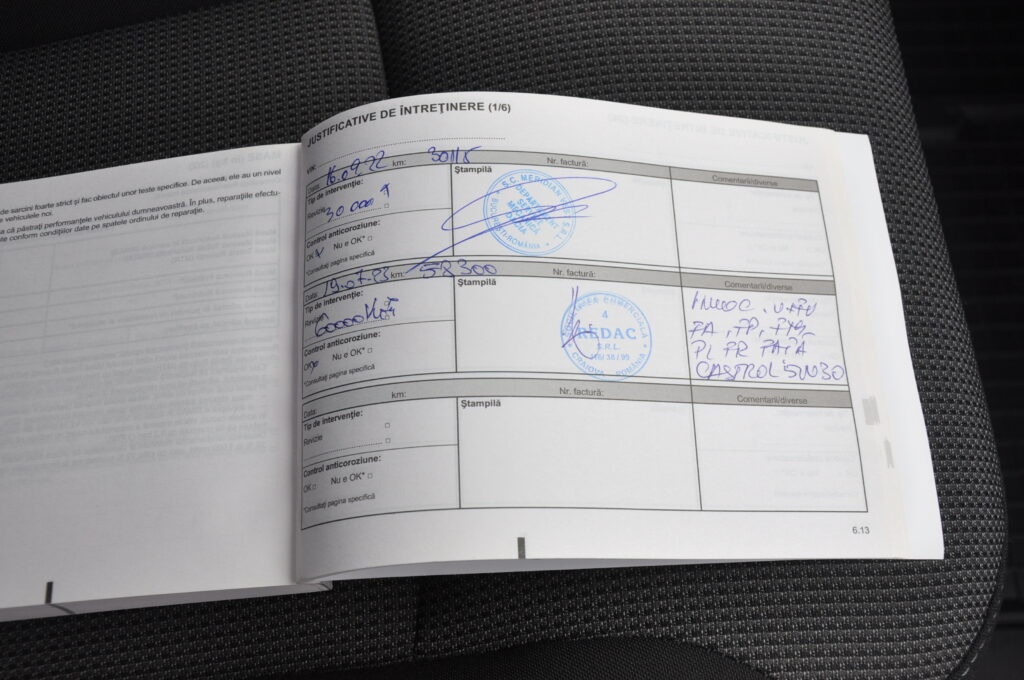 de sarcini foarte strict și fac obiectul unor teste specifice. De aceea, ele au un nivel
vehiculele noi.
sa că păstrați performanțele vehiculului dumneavoastră. În plus, reparațiile efectu-
te conform condițiilor date pe spatele ordinului de reparație.
JUSTIFICATIVE DE ÎNTREȚINERE (1/6)
VIN:
Data: 16.09.22 km: 30115 Nr. factură:
Tip de intervenție:
Revizie 30 000
Control anticoroziune:
OK Nu e OK* □
*Consultați pagina specifică
Ștampilă
S.C. MERIDIAN
S.R.L.
DEPARTAMENT
BUCUREȘTI-ROMÂNIA
Comentarii/diverse
Data: 19.07.23 km: 58300 Nr. factură:
Tip de intervenție:
Revizie 60000 km
Control anticoroziune:
OK Nu e OK* □
*Consultați pagina specifică
Ștampilă
COMERCIALĂ
4
REDAC
S.R.L.
CRAIOVA - ROMÂNIA
Comentarii/diverse
PL FR FAȚĂ
CASTROL 5W30
Data: km: Nr. factură:
Tip de intervenție: □
Revizie □
Control anticoroziune:
OK □ Nu e OK* □
*Consultați pagina specifică
Ștampilă
Comentarii/diverse
6.13